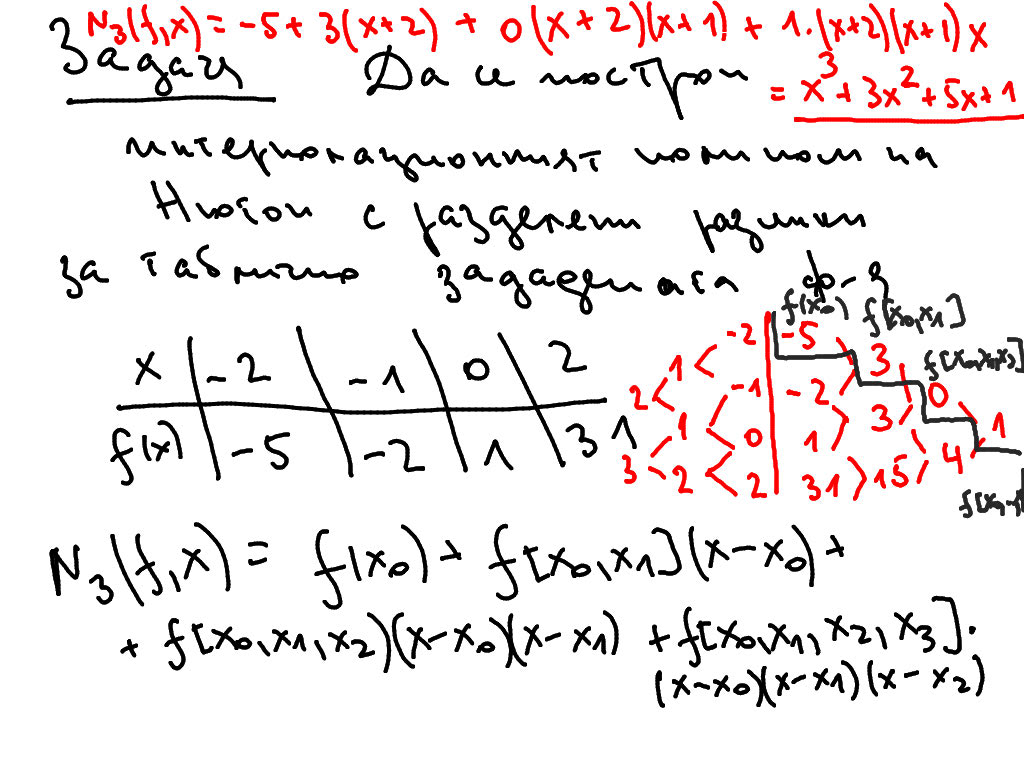 N₃(f,x) = -5 + 3(x+2) + 0(x+2)(x+1) + 1.(x+2)(x+1)x
= x³ + 3x² + 5x + 1
Задача Да се построи
интерполационният полином на
Нютон с разделени разлики
за таблично зададената ф-я
x | -2 | -1 | 0 | 2
f(x) | -5 | -2 | 1 | 31
f(x₀) f[x₀,x₁]
-2 | -5
1 < 3 f[x₀,x₁,x₂]
2 < -1 | -2 0
1 < 3 1
3 < 0 | 1 4
2 < 15
2 | 31
N₃(f,x) = f(x₀) + f[x₀,x₁](x-x₀) +
+ f[x₀,x₁,x₂)(x-x₀)(x-x₁) + f[x₀,x₁,x₂,x₃].
(x-x₀)(x-x₁)(x-x₂)